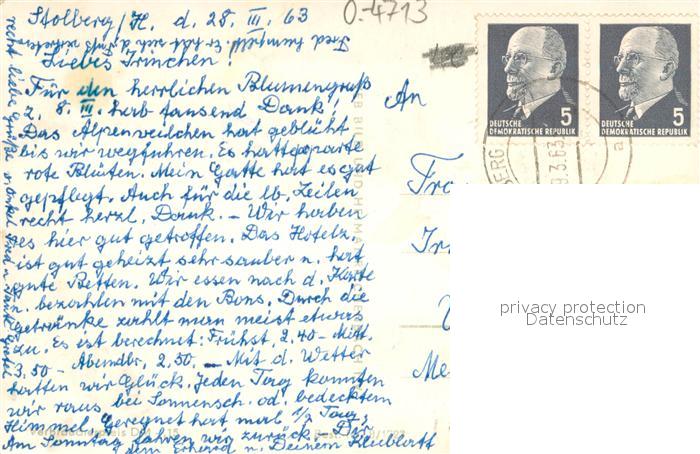 Stolberg/H. d. 28. III. 63
0-4713
Liebes Irmchen!
Für den herrlichen Blumengruß
z. 8. III. hab tausend Dank!
Das Alpenveilchen hat geblüht
bis wir wegfuhren. Es hatte aparte
rote Blüten. Mein Gatte hat es gut
gepflegt. Auch für die lb. Zeilen
recht herzl. Dank. – Wir haben
es hier gut getroffen. Das Hotelz.
ist gut geheizt sehr sauber u. hat
gute Betten. Wir essen nach d. Karte
u. bezahlen mit den Bons. Durch die
Getränke zahlt man meist etwas
zu. Es ist berechnet: Frühst. 2,40 – Mitt.
3,50 – Abendbr. 2,50. – Mit d. Wetter
hatten wir Glück. Jeden Tag konnten
wir raus bei Sonnensch. od. bedecktem
Himmel. Geregnet hat mal 1/2 Tag.
Am Sonntag fahren wir zurück. Dir
dem Erhard u. Deinem Kleeblatt
recht liebe Grüße v. Onkel Fred u. Tante
An
DEUTSCHE
DEMOKRATISCHE REPUBLIK
5
DEUTSCHE
DEMOKRATISCHE REPUBLIK
5
BERG
9.3.63
a
privacy protection
Datenschutz